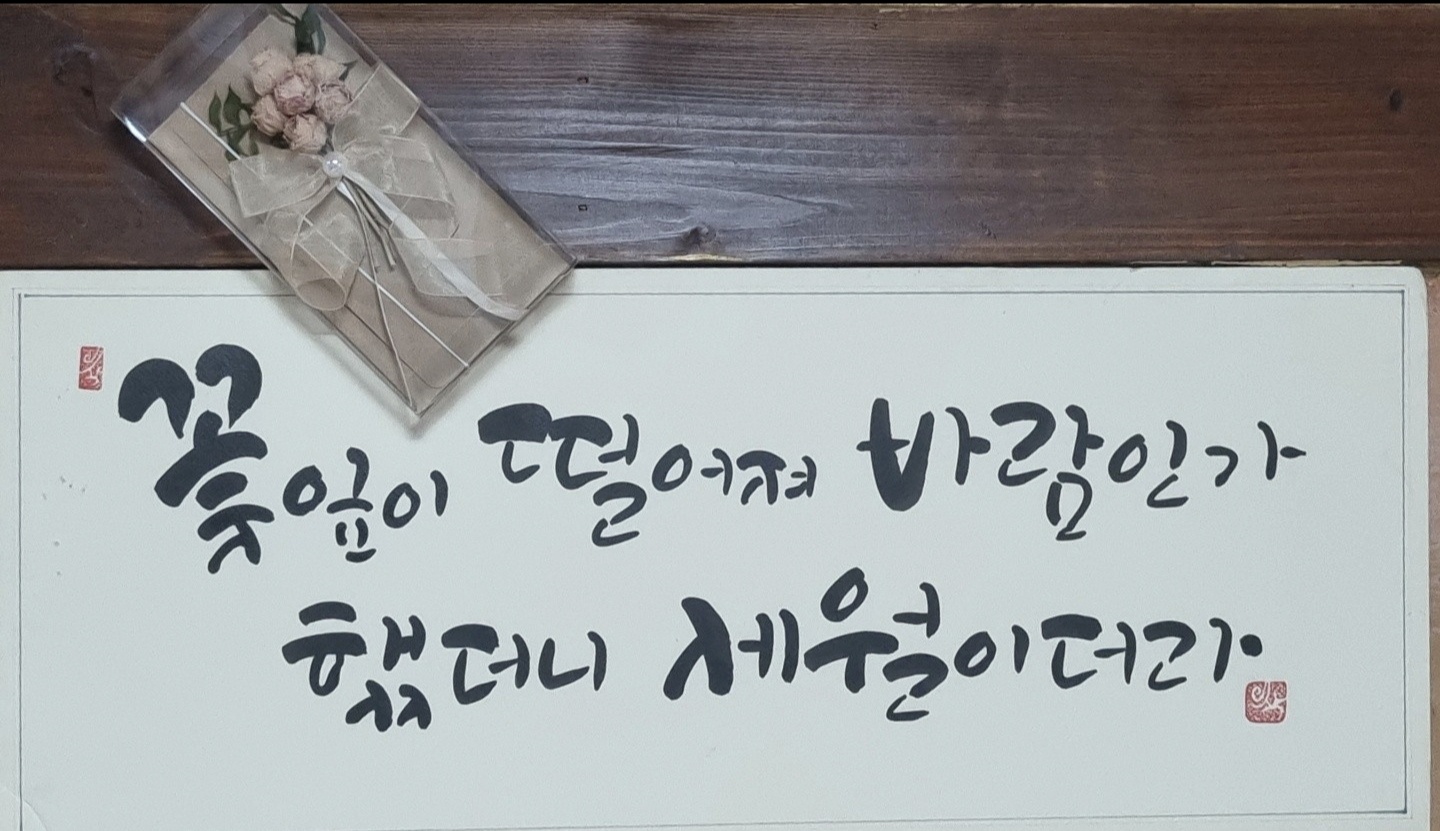 꽃잎이 떨어져 바람인가
했더니 세월이더라